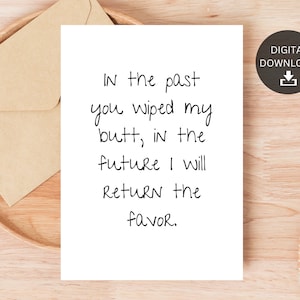 In the past
you wiped my
butt, in the
future I will
return the
favor.
DIGITAL
DOWNLO